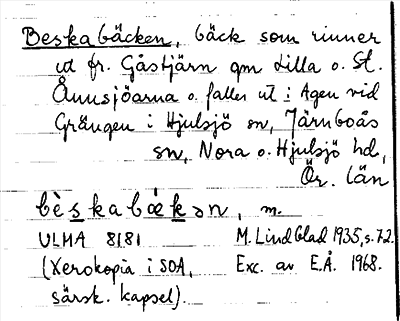 Beskabäcken, bäck som rinner
ut fr. Gåstjärn gm Lilla o. St.
Ånnsjöarna o. faller ut i Agen vid
Grängen i Hjulsjö sn, Järnboås
sn, Nora o. Hjulsjö hd,
Ör. län
bèskabækən, m.
ULMA 8181 M. Lindblad 1935, s. 72.
(Xerokopia i SOA, Exc. av E.Å. 1968.
särsk. kapsel).